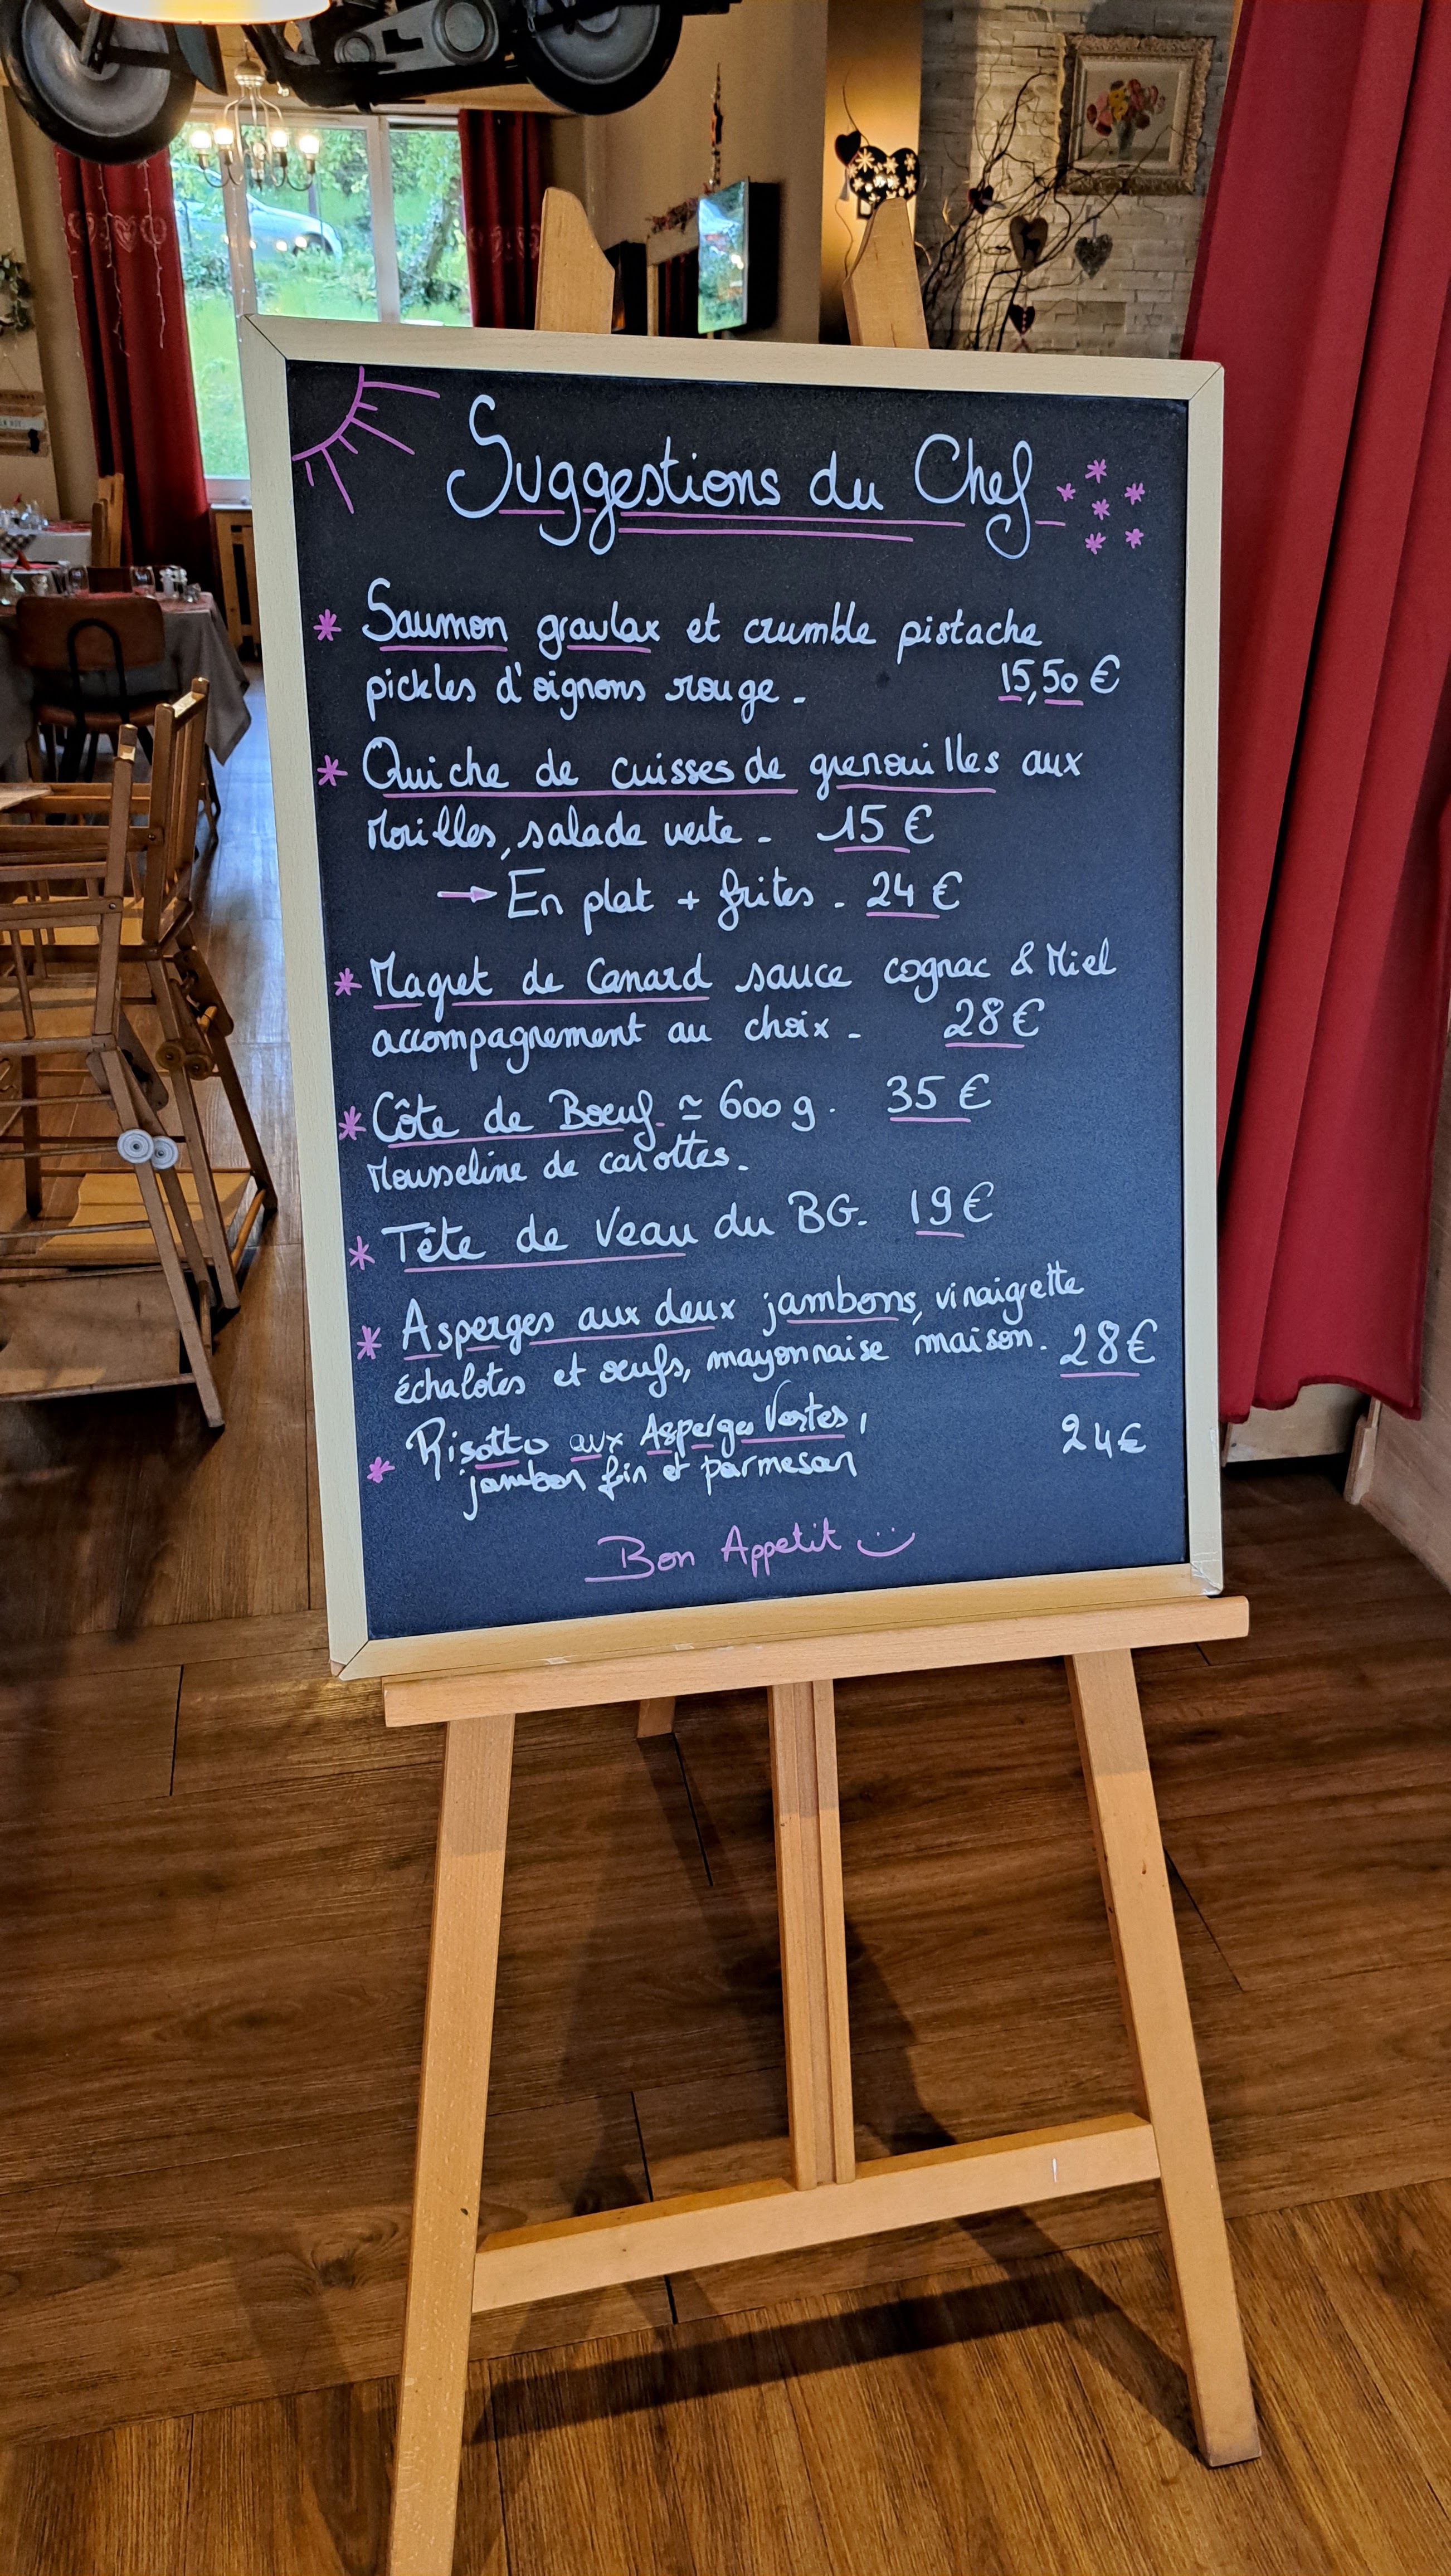 Suggestions du Chef
* Saumon gravlax et crumble pistache
pickles d'oignons rouge. 15,50 €
* Quiche de cuisses de grenouilles aux
Morilles, salade verte. 15 €
→ En plat + frites. 24 €
* Magret de Canard sauce cognac & Miel
accompagnement au choix. 28 €
* Côte de Boeuf ≃ 600 g. 35 €
Mousseline de carottes.
* Tête de Veau du BG. 19 €
* Asperges aux deux jambons, vinaigrette
échalotes et oeufs, mayonnaise maison. 28 €
* Risotto aux Asperges Vertes, 24 €
jambon fin et parmesan
Bon Appetit